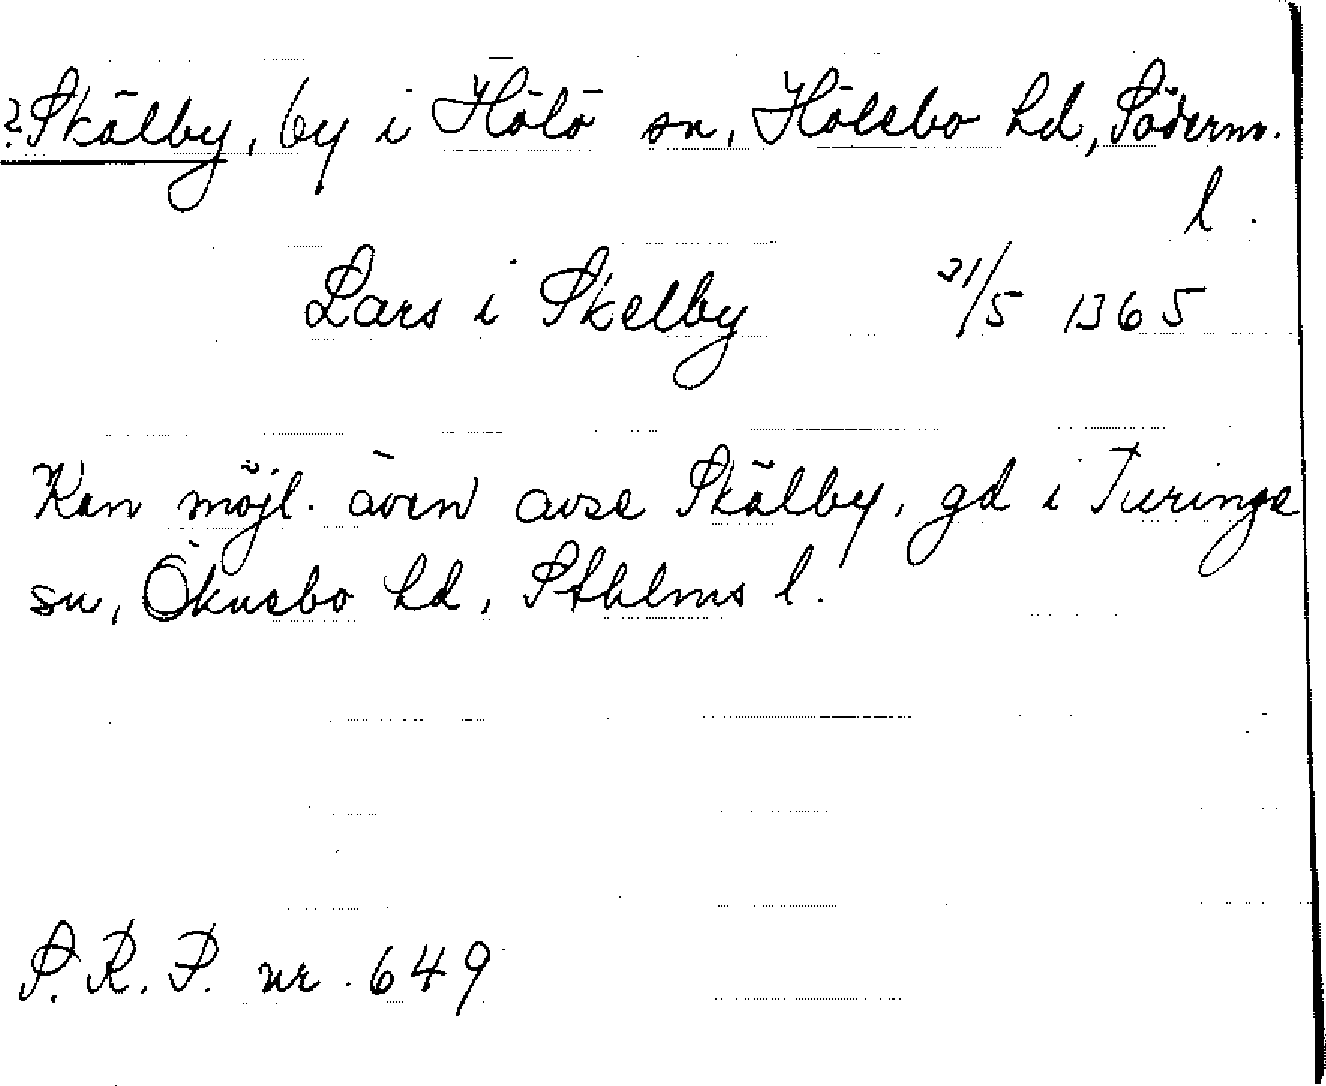 ?Skälby, by i Hölö sn, Hölebo hd, Söderm.
l.
Lars i Skelby 21/5 1365
Kan möjl. även avse Skälby, gd i Turinge
sn, Öknebo hd, Sthlms l.
S.R.P. nr. 649